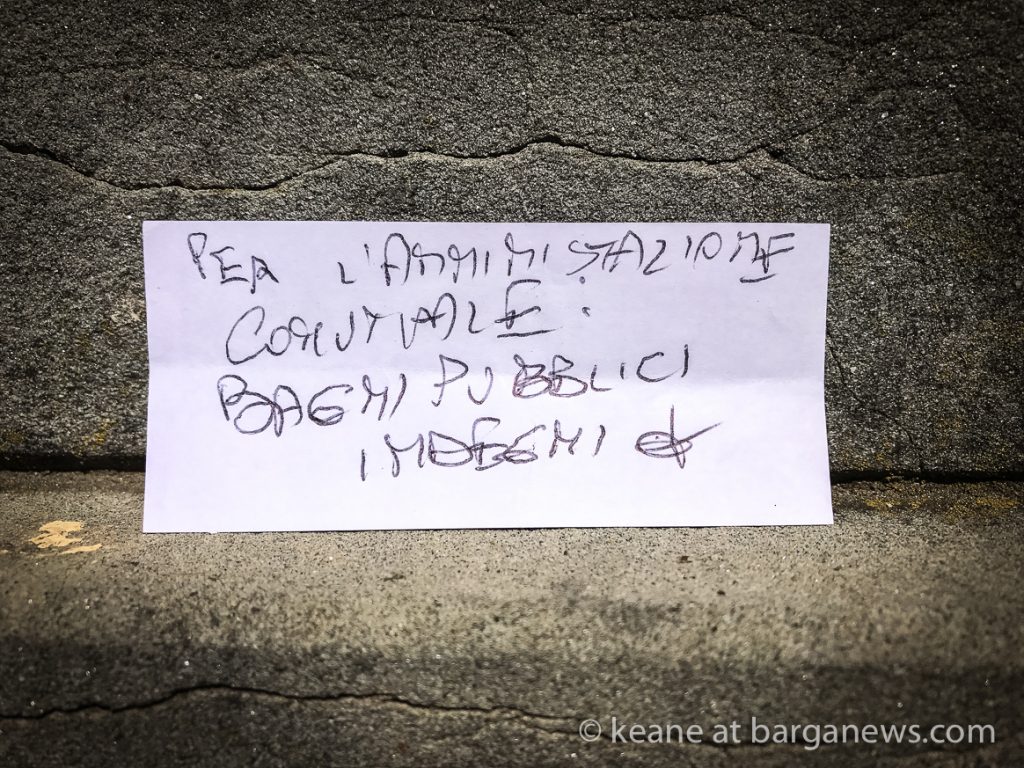 PER L'AMMINISTAZIONE
COMUNALE:
BAGNI PUBBLICI
INDEGNI
© keane at barganews.com